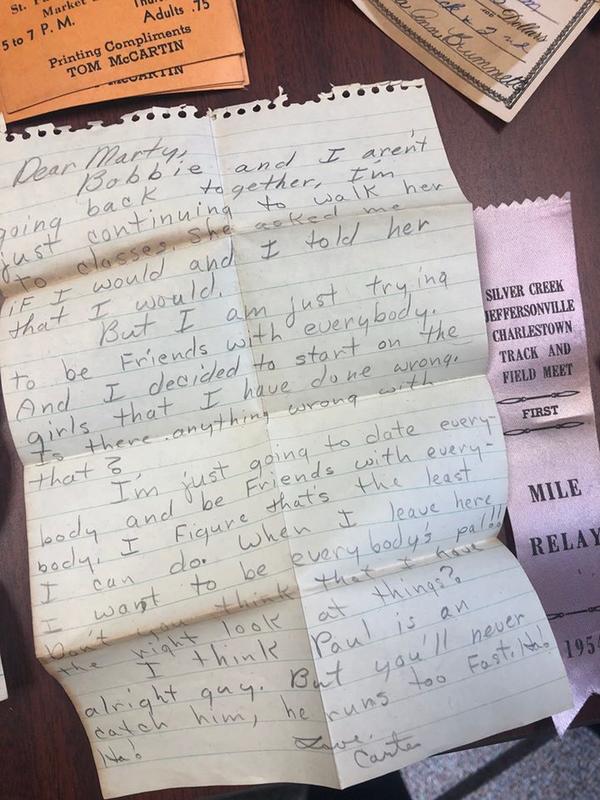 St.
Market
5 to 7 P. M.
Adults .75
Printing Compliments
TOM McCARTIN
McCARTIN
Dollars
Dear Marty,
Bobbie and I aren't
going back together, I'm
just continuing to walk her
to classes. She asked me
if I would and I told her
that I would.
But I am just trying
to be Friends with everybody.
And I decided to start on the
girls that I have done wrong.
Is there anything wrong with
that?
I'm just going to date every-
body and be Friends with every-
body. I Figure that's the least
I can do. When I leave here
I want to be everybody's pal!!
Don't you think that I have
the right look at things?
I think Paul is an
alright guy. But you'll never
catch him, he runs too Fast. Ha!
Ha!
Love,
Carter
SILVER CREEK
JEFFERSONVILLE
CHARLESTOWN
TRACK AND
FIELD MEET
FIRST
MILE
RELAY
1954